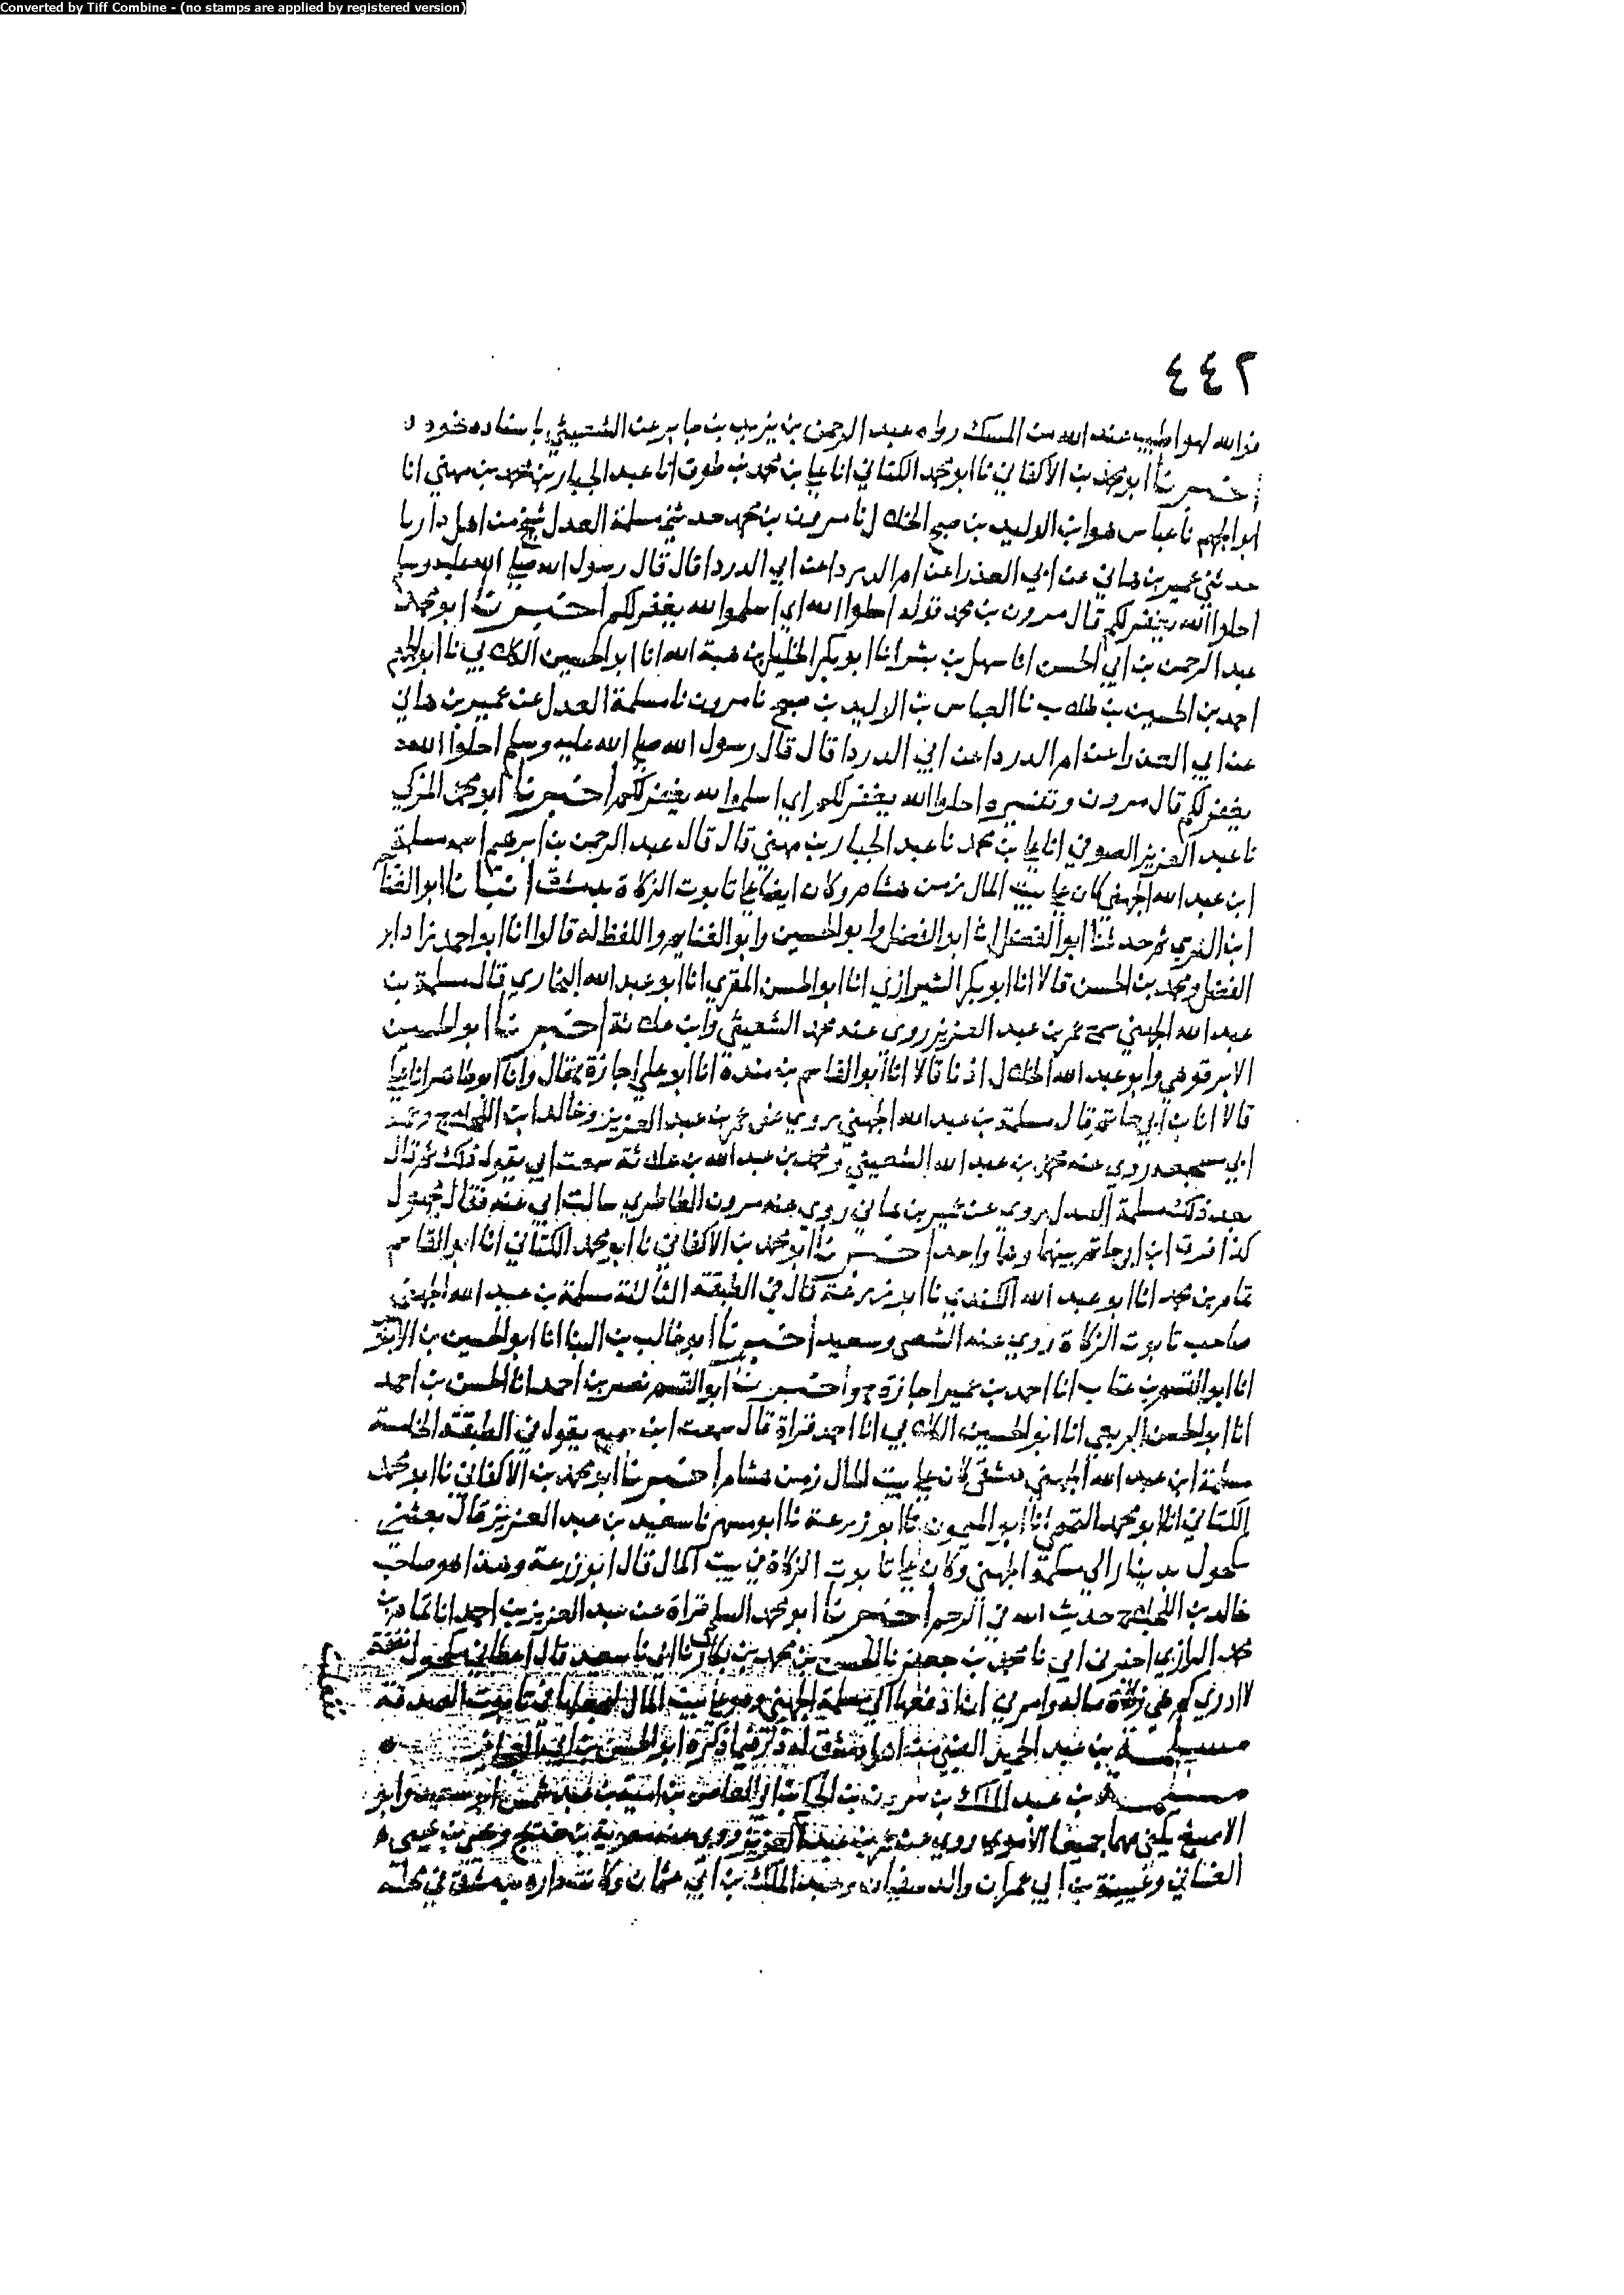 Converted by Tiff Combine - (no stamps are applied by registered version)
٤٤٢
فوالله لهو اطيب عند الله من المسك رواه عبد الرحمن بن يزيد بن جابر عن الشعيثي باسناده نحوه
اخبرنا ابو محمد بن الاكفاني نا ابو محمد الكتاني انا علي بن محمد بن طوق انا عبد الجبار بن محمد بن مهني انا
ابو الجهم نا عباس هو ابن الوليد بن صبح الخلال نا مرون بن محمد حدثني مسلمة العدل شيخ من اهل داريا
حدثني عمير بن هاني عن ابي العذرا عن ام الدردا عن ابي الدردا قال قال رسول الله صلى الله عليه وسلم
احلوا الله يغفر لكم قال مرون بن محمد قوله احلوا الله اي اسلموا لله يغفر لكم اخبرنا ابو محمد
عبد الرحمن بن ابي الحسن انا سهل بن بشر انا ابو بكر الخليل بن هبة الله انا ابو الحسين الكلابي نا ابو الجهم
احمد بن الحسين بن طلاب نا العباس بن الوليد بن صبح نا مرون نا مسلمة العدل عن عمير بن هاني
عن ابي العذرا عن ام الدردا عن ابي الدردا قال قال رسول الله صلى الله عليه وسلم احلوا الله
يغفر لكم قال مرون وتفسيره احلوا الله يغفر لكم اي اسلموا لله يغفر لكم اخبرنا ابو محمد المزكي
نا عبد العزيز الصوفي انا علي بن محمد نا عبد الجبار بن مهني قال قال عبد الرحمن بن ابرهيم مسلمة
ابن عبد الله الجهني كان على بيت المال زمن هشام وكان ايضا على تابوت الزكاة بدمشق انبانا ابو الغنائم
ابن النرسي ثم حدثنا ابو الفضل انا ابو الفضل وابو الحسين وابو الغنايم واللفظ له قالوا انا ابو احمد زاد ابو
الفضل ومحمد بن الحسن قالا انا ابو بكر الشيرازي انا ابو الحسن المقري انا ابو عبد الله البخاري قال مسلمة بن
عبد الله الجهني سمع عمر بن عبد العزيز روى عنه محمد الشعيثي وابن علاثة اخبرنا ابو الحسين
الابرقوهي وابو عبد الله الخلال اذنا قالا انا ابو القاسم بن مندة انا ابو علي اجازة ح قال وانا ابو طاهر انا علي
قالا انا بن ابي حاتم قال مسلمة بن عبد الله الجهني يروي عن عمر بن عبد العزيز وخالد ابن اللجلاج وعمه
ابي مسجعه روى عنه محمد بن عبد الله الشعيثي ومحمد بن عبد الله بن علاثة سمعت ابي يقول ذلك ثم قال
بعد ذلك مسلمة العدل يروي عن عمير بن هاني روى عنه مرون الطاطري سالت ابي عنه فقال مجهول
كذا فرق ابن ابي حاتم بينهما وهما واحد اخبرنا ابو محمد بن الاكفاني نا ابو محمد الكتاني انا ابو القاسم
تمام بن محمد انا ابو عبد الله الكندي نا ابو زرعة قال في الطبقة الثالثة مسلمة بن عبد الله الجهني
صاحب تابوت الزكاة روى عنه الشعيثي وسعيد اخبرنا ابو غالب بن البنا انا ابو الحسين بن الابنوسي
انا ابو القسم بن عتاب انا احمد بن عمير اجازة ح واخبرنا ابو القسم نصر بن احمد انا الحسن بن احمد
انا ابو الحسن الربعي انا ابو الحسين الكلابي انا احمد قراة قال سمعت ابن سميع يقول في الطبقة الخامسة
مسلمة ابن عبد الله الجهني دمشقي كان على بيت المال زمن هشام اخبرنا ابو محمد بن الاكفاني نا ابو محمد
الكتاني انا ابو محمد التميمي انا ابو الميمون نا ابو زرعة نا ابو مسهر نا سعيد بن عبد العزيز قال بعثني
مكحول بدينار الى مسلمة الجهني وكان على تابوت الزكاة في بيت المال قال ابو زرعة وهذا هو صاحب
خالد بن اللجلاج حديث الله في الرجم اخبرنا ابو محمد السلمي قراة عن عبد العزيز بن احمد انا تمام بن
محمد الرازي اخبرني ابي نا محمد بن جعفر نا الحسن بن محمد بن بكار نا ابي نا سعيد قال اعطاني مكحول نفقة
لا ادري كم هي زكاة ماله وامرني ان ادفعها الى مسلمة الجهني وهو على بيت المال ليجعلها في تابوت الصدقة
مسلمة بن عبد الحميد العبسي من اهل دمشق له ذكر فيما ذكره ابو الحسن بن ابي العجائز
مسلمة بن عبد الملك بن مرون بن الحكم بن ابي العاص بن امية بن عبد شمس ابو سعيد وابو
الاصبغ يكنى بهما جميعا الاموي روى عن عمر بن عبد العزيز روى عنه معوية بن خديج ويحيى بن يحيى
الغساني وعيينة بن ابي عمران والد سفيان وعبد الملك بن ابي عثمان وكانت داره بدمشق في محلة